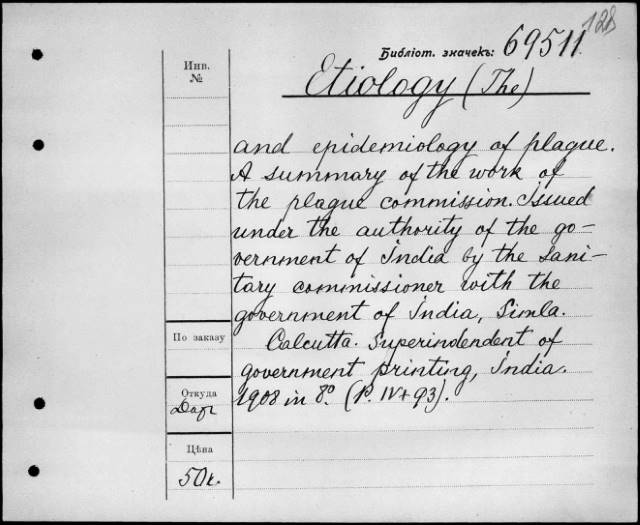 128
Библіот. значекъ: 69511
Инв.
№
Etiology (The)
and epidemiology of plague.
A summary of the work of
the plague commission. Issued
under the authority of the go-
vernment of India by the sani-
tary commissioner with the
government of India, Simla.
Calcutta. Superindendent of
government printing, India.
1908 in 8º. (P. IV + 93).
По заказу
Откуда
Даръ
Цѣна
50к.